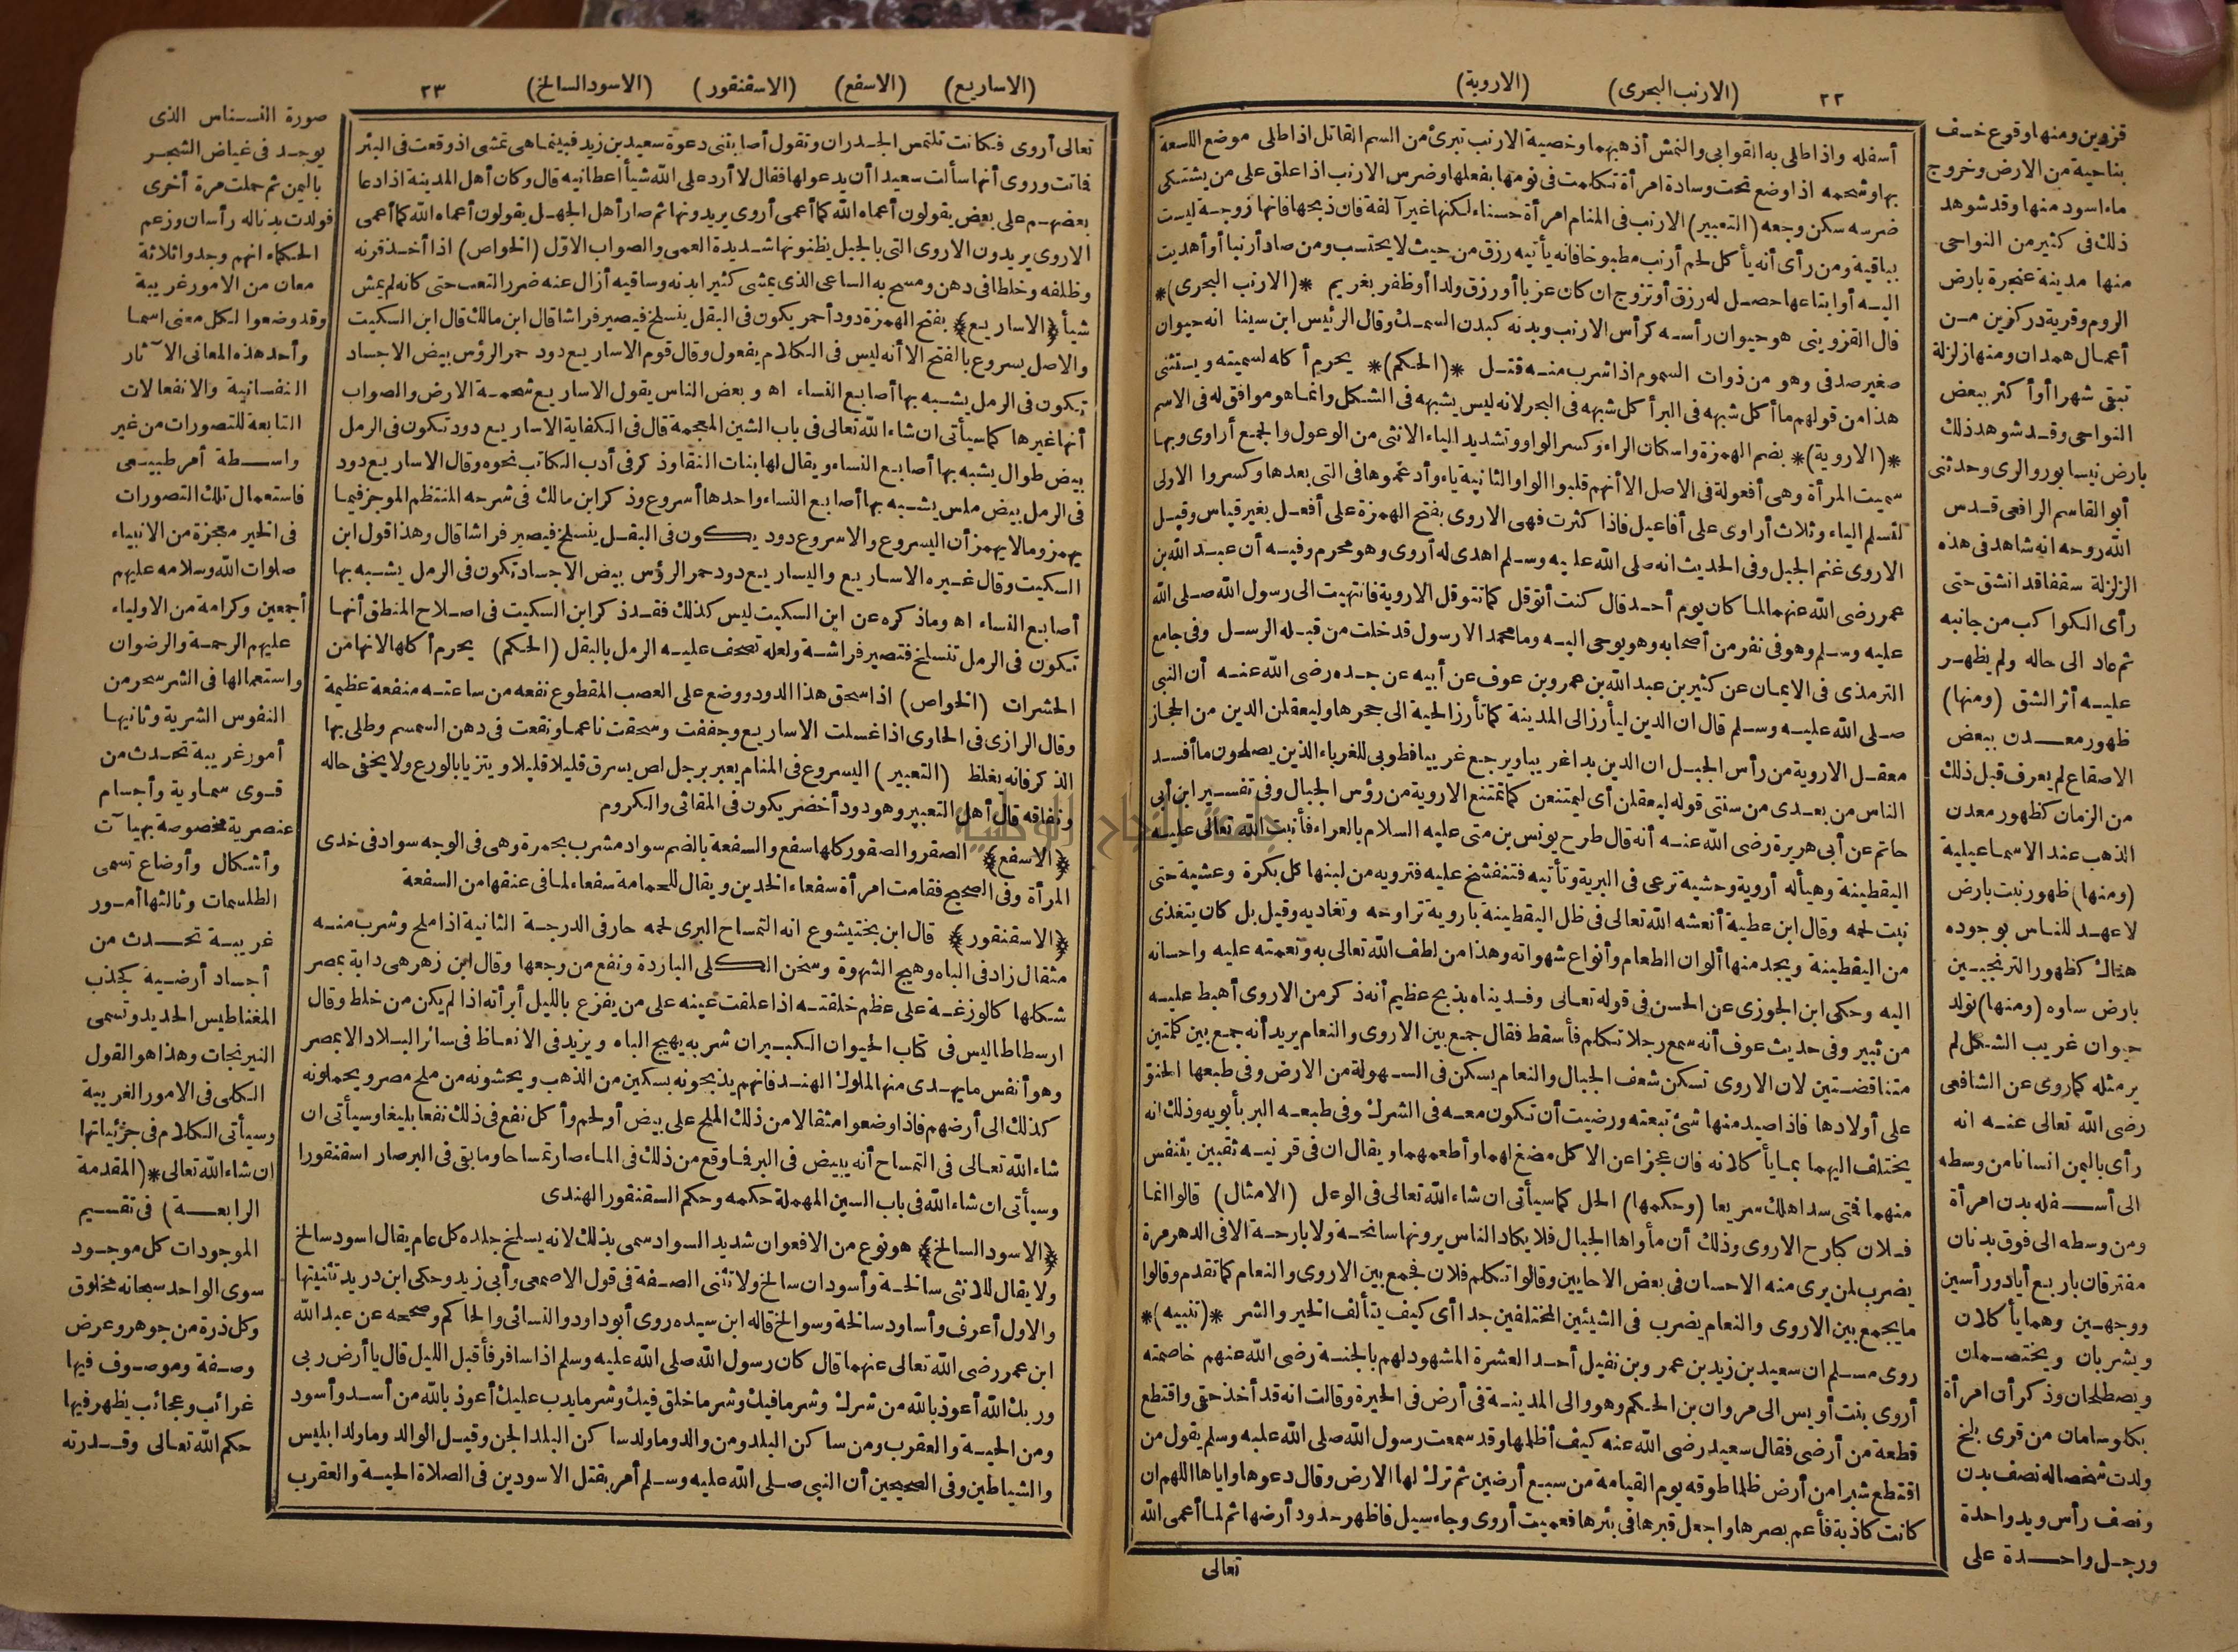 ٢٢ (الارنب البحرى) (الاروية)
أسفله واذا طلى به القوابى والنمش أذهبهما وخصية الارنب تبرئ من السم القاتل اذا طلى موضع اللسعة
بها وشحمه اذا وضع تحت وسادة امرأة تكلمت فى نومها بفعلها وضرس الارنب اذا علق على من يشتكى
ضرسه سكن وجعه (التعبير) الارنب فى المنام امرأة حسناء لكنها غير آلفة فان ذبحها فانها زوجة ليست
بباقية ومن رأى أنه يأكل لحم أرنب مطبوخا فانه يأتيه رزق من حيث لا يحتسب ومن صاد أرنبا أو أهديت
اليه أو ابتاعها حصل له رزق أو تزوج ان كان عزبا أو رزق ولدا أو ظفر بغريم *(الارنب البحرى)*
قال القزوينى هو حيوان رأسه كرأس الارنب وبدنه كبدن السمك وقال الرئيس ابن سينا انه حيوان
صغير صدفى وهو من ذوات السموم اذا شرب منه قتل *(الحكم)* يحرم أكله لسميته ويستثنى
هذا من قولهم ما أكل شبهه فى البر أكل شبهه فى البحر لانه ليس يشبهه فى الشكل وانما هو موافق له فى الاسم
*(الاروية)* بضم الهمزة واسكان الراء وكسر الواو وتشديد الياء الانثى من الوعول والجمع أراوى وبها
سميت المرأة وهى أفعولة فى الاصل الا أنهم قلبوا الواو الثانية ياء وأدغموها فى التى بعدها وكسروا الاولى
لتسلم الياء وثلاث أراوى على أفاعيل فاذا كثرت فهى الاروى بفتح الهمزة على أفعل بغير قياس وقيل
الاروى غنم الجبل وفى الحديث انه صلى الله عليه وسلم اهدى له أروى وهو محرم وفيه أن عبد الله بن
عمر رضى الله عنهما لما كان يوم أحد قال كنت أتوقل كما تتوقل الاروية فانتهيت الى رسول الله صلى الله
عليه وسلم وهو فى نفر من أصحابه وهو يوحى اليه وما محمد الا رسول قد خلت من قبله الرسل وفى جامع
الترمذى فى الايمان عن كثير بن عبد الله بن عمرو بن عوف عن أبيه عن جده رضى الله عنه أن النبى
صلى الله عليه وسلم قال ان الدين ليأرز الى المدينة كما تأرز الحية الى جحرها وليعقلن الدين من الحجاز
معقل الاروية من رأس الجبل ان الدين بدا غريبا ويرجع غريبا فطوبى للغرباء الذين يصلحون ما أفسد
الناس من بعدى من سنتى قوله ليعقلن أى ليمتنعن كما تمتنع الاروية من رؤس الجبال وفى تفسير ابن أبى
حاتم عن أبى هريرة رضى الله عنه أنه قال طرح يونس بن متى عليه السلام بالعراء فأنبت الله تعالى عليه
اليقطينة وهيأ له أروية وحشية ترعى فى البرية وتأتيه فتنفشخ عليه فترويه من لبنها كل بكرة وعشية حتى
نبت لحمه وقال ابن عطية أنعشه الله تعالى فى ظل اليقطينة باروية تراوحه وتغاديه وقيل بل كان يتغذى
من اليقطينة ويجد منها ألوان الطعام وأنواع شهواته وهذا من لطف الله تعالى به ونعمته عليه واحسانه
اليه وحكى ابن الجوزى عن الحسن فى قوله تعالى وفديناه بذبح عظيم أنه ذكر من الاروى أهبط عليه
من ثبير وفى حديث عوف أنه سمع رجلا تكلم فأسقط فقال جمع بين الاروى والنعام يريد أنه جمع بين كلمتين
متناقضتين لان الاروى تسكن شعف الجبال والنعام يسكن فى السهولة من الارض وفى طبعها الحنو
على أولادها فاذا صيد منها شئ تبعته ورضيت أن تكون معه فى الشرك وفى طبعه البر بأبويه وذلك انه
يختلف اليهما بما يأكلانه فان عجزا عن الاكل مضغ لهما وأطعمهما ويقال ان فى قرنيه ثقبين يتنفس
منهما فتى سدا هلك سريعا (وحكمها) الحل كما سيأتى ان شاء الله تعالى فى الوعل (الامثال) قالوا انما
فلان كبارح الاروى وذلك أن مأواها الجبال فلا يكاد الناس يرونها سانحة ولا بارحة الا فى الدهر مرة
يضرب لمن يرى منه الاحسان فى بعض الاحايين وقالوا تكلم فلان فجمع بين الاروى والنعام كما تقدم وقالوا
ما يجمع بين الاروى والنعام يضرب فى الشيئين المختلفين جدا أى كيف يتألف الخير والشر *(تنبيه)*
روى مسلم ان سعيد بن زيد بن عمرو بن نفيل أحد العشرة المشهود لهم بالجنة رضى الله عنهم خاصمته
أروى بنت أويس الى مروان بن الحكم وهو والى المدينة فى أرض فى الحيرة وقالت انه قد أخذ حقى واقتطع
قطعة من أرضى فقال سعيد رضى الله عنه كيف أظلمها وقد سمعت رسول الله صلى الله عليه وسلم يقول من
اقتطع شبرا من أرض ظلما طوقه يوم القيامة من سبع أرضين ثم ترك لها الارض وقال دعوها واياها اللهم ان
كانت كاذبة فأعم بصرها واجعل قبرها فى بئرها فعميت أروى وجاء سيل فاظهر حدود أرضها ثم لما أعمى الله
تعالى
قزوين ومنها وقوع خسف
بناحية من الارض وخروج
ماء اسود منها وقد شوهد
ذلك فى كثير من النواحى
منها مدينة عنجرة بارض
الروم وقرية دركزين من
أعمال همدان ومنها زلزلة
تبقى شهرا أو أكثر ببعض
النواحى وقد شوهد ذلك
بارض نيسابور والرى وحدثنى
أبو القاسم الرافعى قدس
الله روحه انه شاهد فى هذه
الزلزلة سقفا قد انشق حتى
رأى الكواكب من جانبه
ثم عاد الى حاله ولم يظهر
عليه أثر الشق (ومنها)
ظهور معدن ببعض
الاصقاع لم يعرف قبل ذلك
من الزمان كظهور معدن
الذهب عند الاسماعيلية
(ومنها) ظهور نبت بارض
لا عهد للناس بوجوده
هناك كظهور الترنجبين
بارض ساوه (ومنها) تولد
حيوان غريب الشكل لم
ير مثله كما روى عن الشافعى
رضى الله تعالى عنه انه
رأى باليمن انسانا من وسطه
الى أسفله بدن امرأة
ومن وسطه الى فوق بدنان
مفترقان باربع أياد ورأسين
ووجهين وهما يأكلان
ويشربان ويختصمان
ويصطلحان وذكر أن امرأة
بكاوسامان من قرى بلخ
ولدت شخصا له نصف بدن
ونصف رأس ويد واحدة
ورجل واحدة على
(الاساريع) (الاسفع) (الاسقنقور) (الاسود السالخ) ٢٣
تعالى أروى فكانت تلتمس الجدران وتقول أصابتنى دعوة سعيد بن زيد فبينما هى تمشى اذ وقعت فى البئر
فاتت وروى أنها سألت سعيدا أن يدعو لها فقال لا أرد على الله شيأ أعطانيه قال وكان أهل المدينة اذا دعا
بعضهم على بعض يقولون أعماه الله كما أعمى أروى يريدونها ثم صار أهل الجهل يقولون أعماه الله كما أعمى
الاروى يريدون الاروى التى بالجبل يظنونها شديدة العمى والصواب الاوّل (الخواص) اذا أخذ قرنه
وظلفه وخلطا فى دهن ومسح به الساعى الذى يمشى كثيرا بدنه وساقيه أزال عنه ضرر التعب حتى كانه لم يمش
شيأ ﴿الاساريع﴾ بفتح الهمزة دود أحمر يكون فى البقل ينسلخ فيصير فراشا قال ابن مالك قال ابن السكيت
والاصل يسروع بالفتح الا أنه ليس فى الكلام يفعول وقال قوم الاساريع دود حمر الرؤس بيض الاجساد
تكون فى الرمل يشبه بها أصابع النساء اه وبعض الناس يقول الاساريع شحمة الارض والصواب
أنها غيرها كما سيأتى ان شاء الله تعالى فى باب الشين المعجمة قال فى الكفاية الاساريع دود تكون فى الرمل
بيض طوال يشبه بها أصابع النساء ويقال لها بنات النقا وذكر فى أدب الكاتب نحوه وقال الاساريع دود
فى الرمل بيض ملس يشبه بها أصابع النساء واحدها أسروع وذكر ابن مالك فى شرحه المنتظم الموجز فيما
يهمز وما لا يهمز أن اليسروع والاسروع دود يكون فى البقل ينسلخ فيصير فراشا قال وهذا قول ابن
السكيت وقال غيره الاساريع واليساريع دود حمر الرؤس بيض الاجساد تكون فى الرمل يشبه بها
أصابع النساء اه وما ذكره عن ابن السكيت ليس كذلك فقد ذكر ابن السكيت فى اصلاح المنطق أنها
تكون فى الرمل تنسلخ فتصير فراشة ولعله تصحف عليه الرمل بالبقل (الحكم) يحرم أكلها لانها من
الحشرات (الخواص) اذا سحق هذا الدود ووضع على العصب المقطوع نفعه من ساعته منفعة عظيمة
وقال الرازى فى الحاوى اذا غسلت الاساريع وجففت وسحقت ناعما ونقعت فى دهن السمسم وطلى بها
الذكر فانه يغلظ (التعبير) اليسروع فى المنام يعبر برجل لص يسرق قليلا قليلا ويتزيا بالورع ولا يخفى حاله
ونفاقه قال أهل التعبير وهو دود أخضر يكون فى المقاثى والكروم
﴿الاسفع﴾ الصقر والصقور كلها سفع والسفعة بالضم سواد مشرب بحمرة وهى فى الوجه سواد فى خدى
المرأة وفى الصحيح فقامت امرأة سفعاء الخدين ويقال للحمامة سفعاء لما فى عنقها من السفعة
﴿الاسقنقور﴾ قال ابن بختيشوع انه التمساح البرى لحمه حار فى الدرجة الثانية اذا ملح وشرب منه
مثقال زاد فى الباه وهيج الشهوة وسخن الكلى الباردة ونفع من وجعها وقال ابن زهر هى دابة بمصر
شكلها كالوزغة على عظم خلقته اذا علقت عينه على من يفزع بالليل أبرأته اذا لم يكن من خلط وقال
ارسطاطاليس فى كتاب الحيوان الكبير ان شربه يهيج الباه ويزيد فى الانعاظ فى سائر البلاد الا بمصر
وهو أنفس ما يهدى منها لملوك الهند فانهم يذبحونه بسكين من الذهب ويحشونه من ملح مصر ويحملونه
كذلك الى أرضهم فاذا وضعوا مثقالا من ذلك الملح على بيض أو لحم وأكل نفع فى ذلك نفعا بليغا وسيأتى ان
شاء الله تعالى فى التمساح أنه يبيض فى البر فما وقع من ذلك فى الماء صار تمساحا وما بقى فى البر صار اسقنقورا
وسيأتى ان شاء الله فى باب السين المهملة حكمه وحكم السقنقور الهندى
﴿الاسود السالخ﴾ هو نوع من الافعوان شديد السواد سمى بذلك لانه يسلخ جلده كل عام يقال اسود سالخ
ولا يقال للانثى سالخة وأسودان سالخ ولا تثنى الصفة فى قول الاصمعى وأبى زيد وحكى ابن دريد تثنيتها
والاول أعرف وأساود سالخة وسوالخ قاله ابن سيده روى أبو داود والنسائى والحاكم وصححه عن عبد الله
ابن عمر رضى الله تعالى عنهما قال كان رسول الله صلى الله عليه وسلم اذا سافر فأقبل الليل قال يا أرض ربى
وربك الله أعوذ بالله من شرك وشر ما فيك وشر ما خلق فيك وشر ما يدب عليك أعوذ بالله من أسد وأسود
ومن الحية والعقرب ومن ساكن البلد ومن والد وما ولد ساكن البلد الجن وقيل الوالد وما ولد ابليس
والشياطين وفى الصحيحين أن النبى صلى الله عليه وسلم أمر بقتل الاسودين فى الصلاة الحية والعقرب
صورة النسناس الذى
يوجد فى غياض الشجر
باليمن ثم حملت مرة أخرى
فولدت بدنا له رأسان وزعم
الحكماء انهم وجدوا ثلاثة
معان من الامور غريبة
وقد وضعوا لكل معنى اسما
وأحد هذه المعانى الآثار
النفسانية والانفعالات
التابعة للتصورات من غير
واسطة أمر طبيعى
فاستعمال تلك التصورات
فى الخير معجزة من الانبياء
صلوات الله وسلامه عليهم
أجمعين وكرامة من الاولياء
عليهم الرحمة والرضوان
واستعمالها فى الشر سحر من
النفوس الشريرة وثانيها
أمور غريبة تحدث من
قوى سماوية وأجسام
عنصرية مخصوصة بهيآت
وأشكال وأوضاع تسمى
الطلسمات وثالثها أمور
غريبة تحدث من
أجساد أرضية كجذب
المغناطيس الحديد وتسمى
النيرنجات وهذا هو القول
الكلى فى الامور الغريبة
وسيأتى الكلام فى جزئياتها
ان شاء الله تعالى *(المقدمة
الرابعة) فى تقسيم
الموجودات كل موجود
سوى الواحد سبحانه مخلوق
وكل ذرة من جوهر وعرض
وصفة وموصوف فيها
غرائب وعجائب يظهر فيها
حكم الله تعالى وقدرته